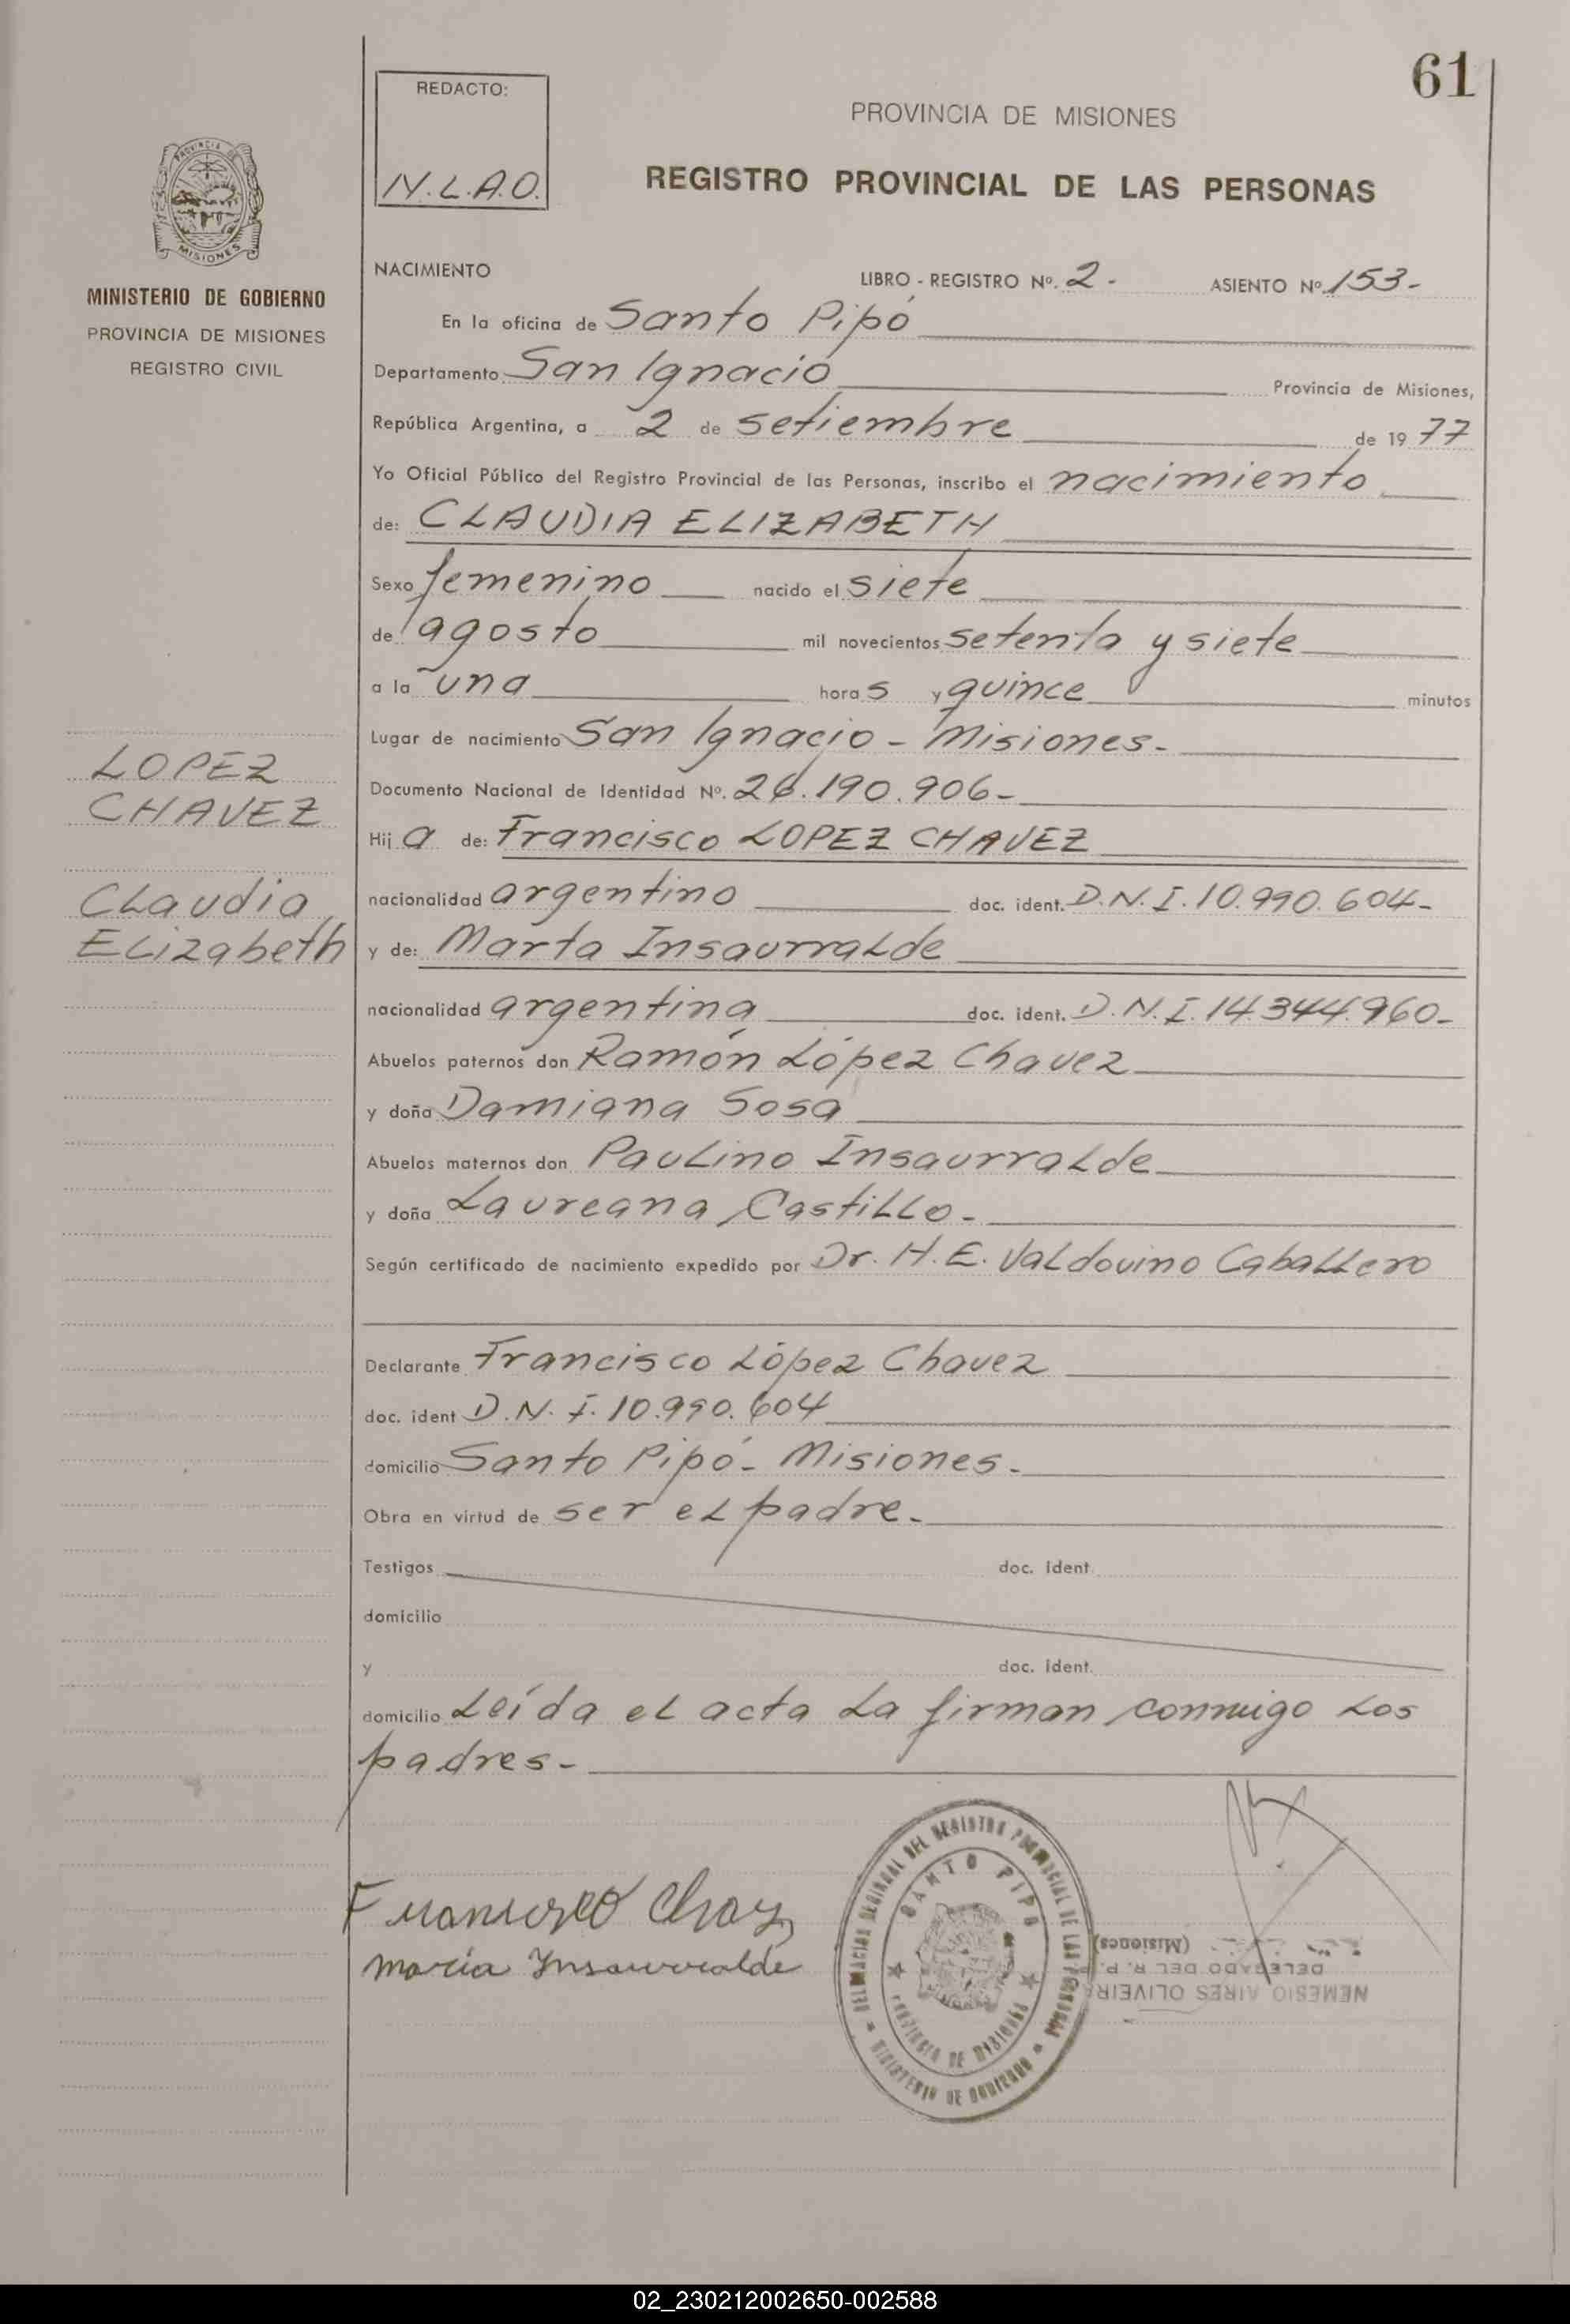 61
REDACTO:
N.L.A.O.
PROVINCIA DE MISIONES
REGISTRO PROVINCIAL DE LAS PERSONAS
PROVINCIA DE
MISIONES
MINISTERIO DE GOBIERNO
PROVINCIA DE MISIONES
REGISTRO CIVIL
NACIMIENTO LIBRO - REGISTRO Nº. 2 - ASIENTO Nº 153-
En la oficina de Santo Pipó
Departamento San Ignacio Provincia de Misiones,
República Argentina, a 2 de setiembre de 19 77
Yo Oficial Público del Registro Provincial de las Personas, inscribo el nacimiento
de: CLAUDIA ELIZABETH
Sexo femenino nacido el siete
de agosto mil novecientos setenta y siete
a la una hora s y quince minutos
Lugar de nacimiento San Ignacio - Misiones-
Documento Nacional de Identidad Nº. 26.190.906-
LOPEZ
CHAVEZ
Claudia
Elizabeth
Hij a de: Francisco LOPEZ CHAVEZ
nacionalidad argentino doc. ident. D.N.I. 10.990.604-
y de: Marta Insaurralde
nacionalidad argentina doc. ident. D.N.I. 14.344.960-
Abuelos paternos don Ramón López Chavez
y doña Damiana Sosa
Abuelos maternos don Paulino Insaurralde
y doña Laureana Castillo-
Según certificado de nacimiento expedido por Dr. H.E. Valdovino Caballero
Declarante Francisco López Chavez
doc. ident D.N.I. 10.990.604
domicilio Santo Pipó - Misiones-
Obra en virtud de ser el padre-
Testigos doc. ident.
domicilio
y doc. ident.
domicilio Leída el acta la firman conmigo los
padres-
Francisco Chavez
María Insaurralde
DELEGACION REGIONAL DEL REGISTRO PROVINCIAL DE LAS PERSONAS
MINISTERIO DE GOBIERNO
SANTO PIPO
PROVINCIA DE MISIONES
NEMESIO AIRES OLIVEIR
DELEGADO DEL R. P. P.
(Misiones)
02_230212002650-002588